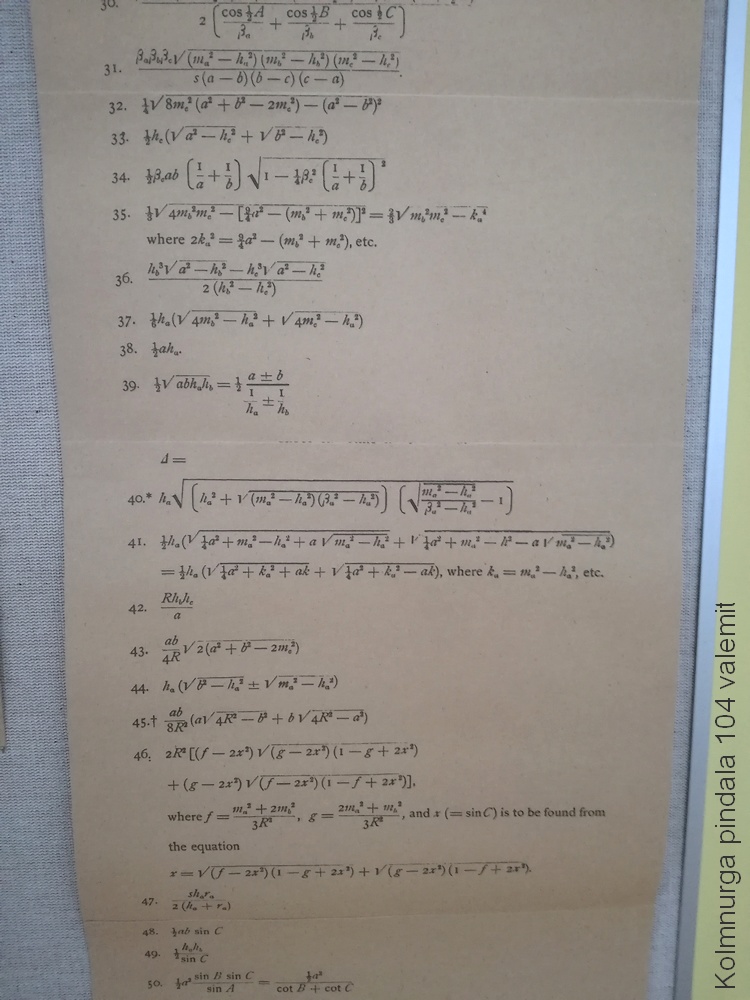 30.
2 ( cos ½A / βa + cos ½B / βb + cos ½C / βc )
31. βaβbβc√(ma² — ha²) (mb² — hb²) (mc² — hc²) / s (a — b) (b — c) (c — a)
32. ¼√8mc² (a² + b² — 2mc²) — (a² — b²)²
33. ½hc (√a² — hc² + √b² — hc²)
34. ½βcab (1/a + 1/b) √1 — ¼βc² (1/a + 1/b)²
35. ⅓√4mb²mc² — [9/4a² — (mb² + mc²)]² = ⅔√mb²mc² — ka⁴
where 2ka² = 9/4a² — (mb² + mc²), etc.
36. hb³√a² — hb² — hc³√a² — hc² / 2 (hb² — hc²)
37. ⅙ha(√4mb² — ha² + √4mc² — ha²)
38. ½aha.
39. ½√abhahb = ½ a ± b / 1/ha ± 1/hb
Δ =
40.* ha√(ha² + √(ma² — ha²) (βa² — ha²)) (√ma² — ha² / βa² — ha² — 1)
41. ½ha(√¼a² + ma² — ha² + a √ma² — ha² + √¼a² + ma² — h² — a √ma² — ha²)
= ½ha (√¼a² + ka² + ak + √¼a² + ka² — ak), where ka = ma² — ha², etc.
42. Rhbhc / a
43. ab/4R √2(a² + b² — 2mc²)
44. ha (√b² — ha² ± √ma² — ha²)
45.† ab/8R² (a√4R² — b² + b √4R² — a²)
46. 2R² [(f — 2x²) √(g — 2x²) (1 — g + 2x²)
+ (g — 2x²) √(f — 2x²) (1 — f + 2x²)],
where f = ma² + 2mb² / 3R², g = 2ma² + mb² / 3R², and x (= sin C) is to be found from
the equation
x = √(f — 2x²) (1 — g + 2x²) + √(g — 2x²) (1 — f + 2x²).
47. shara / 2 (ha + ra)
48. ½ab sin C
49. ½ hahb / sin C
50. ½a² sin B sin C / sin A = ½a² / cot B + cot C
Kolmnurga pindala 104 valemit